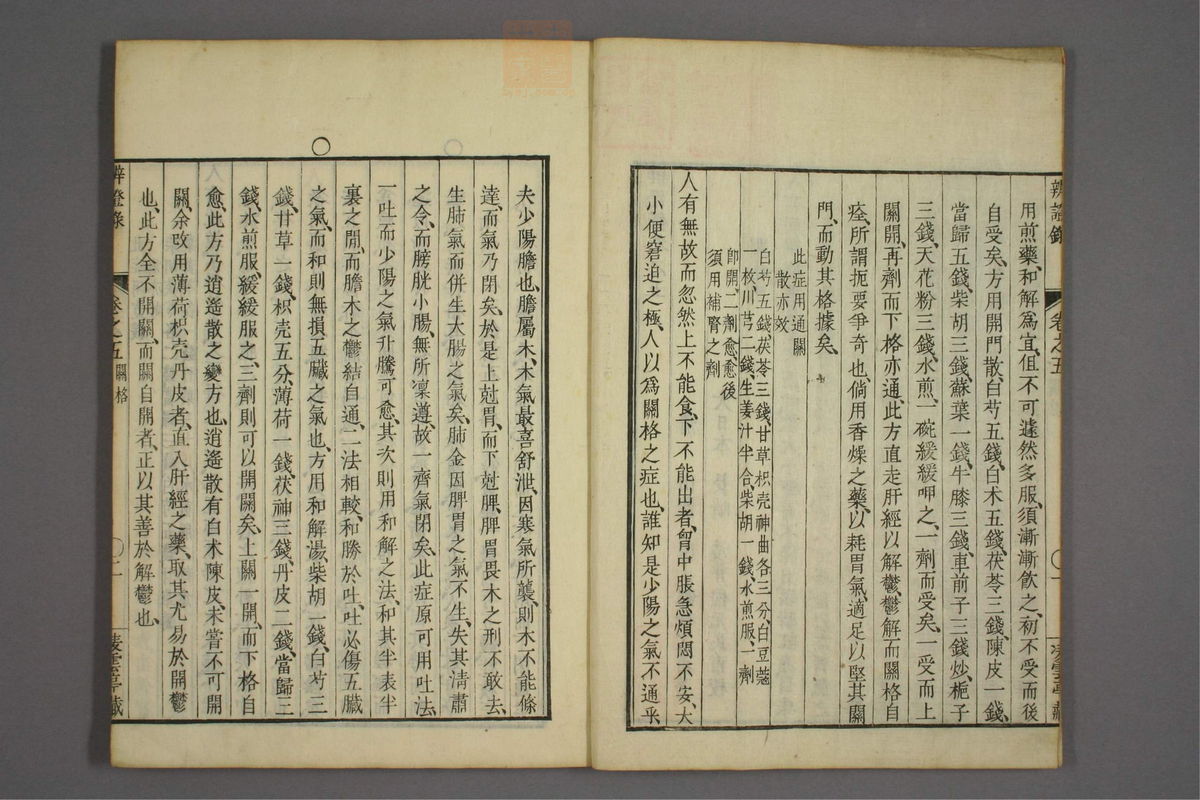 辨證錄 卷之五 〇一
用煎藥、和解爲宜、但不可遽然多服、須漸漸飲之、初不受而後
自受矣、方用開門散、白芍五錢、白木五錢、茯苓三錢、陳皮一錢、
當歸五錢、柴胡三錢、蘇葉一錢、牛膝三錢、車前子三錢炒、梔子
三錢、天花粉三錢、水煎、一碗緩緩呷之、一劑而受矣、一受而上
關開、再劑而下格亦通、此方直走肝經以解鬱、鬱解而關格自
痊、所謂扼要爭奇也、倘用香燥之藥、以耗胃氣、適足以堅其關
門、而動其格據矣、
此症用通關
散亦效
白芍五錢、茯苓三錢、甘草枳壳神曲各三分、白豆蔻
一枚、川芎二錢、生姜汁半合、柴胡一錢、水煎服、一劑
卽開、二劑愈、愈後
須用補腎之劑
人有無故而忽然上不能食、下不能出者、胷中脹急、煩悶不安、大
小便窘迫之極、人以爲關格之症也、誰知是少陽之氣不通乎、
夫少陽膽也、膽屬木、木氣最喜舒泄、因寒氣所襲、則木不能條
達、而氣乃閉矣、於是上尅胃、而下尅脾、脾胃畏木之刑、不敢去
生肺氣、而併生大腸之氣矣、肺金因脾胃之氣不生、失其淸肅
之令、而膀胱小腸、無所凜遵、故一齊氣閉矣、此症原可用吐法、
一吐而少陽之氣升騰可愈、其次則用和解之法、和其半表半
裏之間、而膽木之鬱結自通、二法相較、和勝於吐、吐必傷五臟
之氣、而和則無損五臟之氣也、方用和解湯、柴胡一錢、白芍三
錢、甘草一錢、枳壳五分、薄荷一錢、茯神三錢、丹皮二錢、當歸三
錢、水煎服、緩緩服之、三劑則可以開關矣、上關一開、而下格自
愈、此方乃逍遙散之變方也、逍遙散有白木陳皮、未嘗不可開
關、余改用薄荷枳壳丹皮者、直入肝經之藥、取其尤易於開鬱
也、此方全不開關、而關自開者、正以其善於解鬱也、
辨證錄 卷之五 關格 〇二